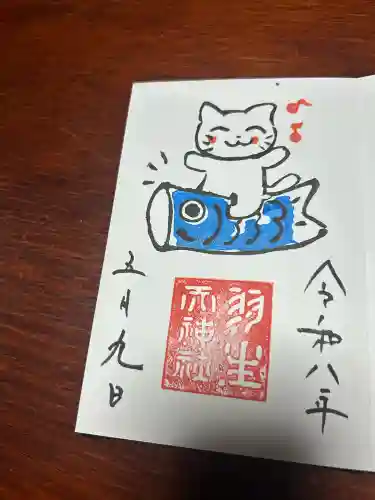 令和八年
羽生
天神社
五月九日